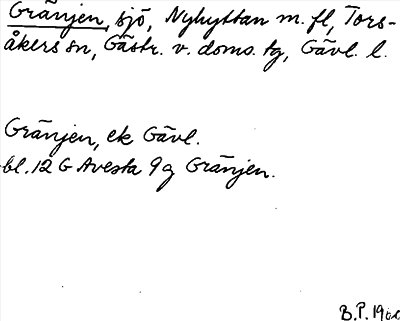 Gränjen, sjö, Nyhyttan m. fl, Tors-
åkers sn, Gästr. v. doms. tg, Gävl. l.
Gränjen, ek Gävl.
bl. 12 G Avesta 9 g Gränjen.
B.P. 1960